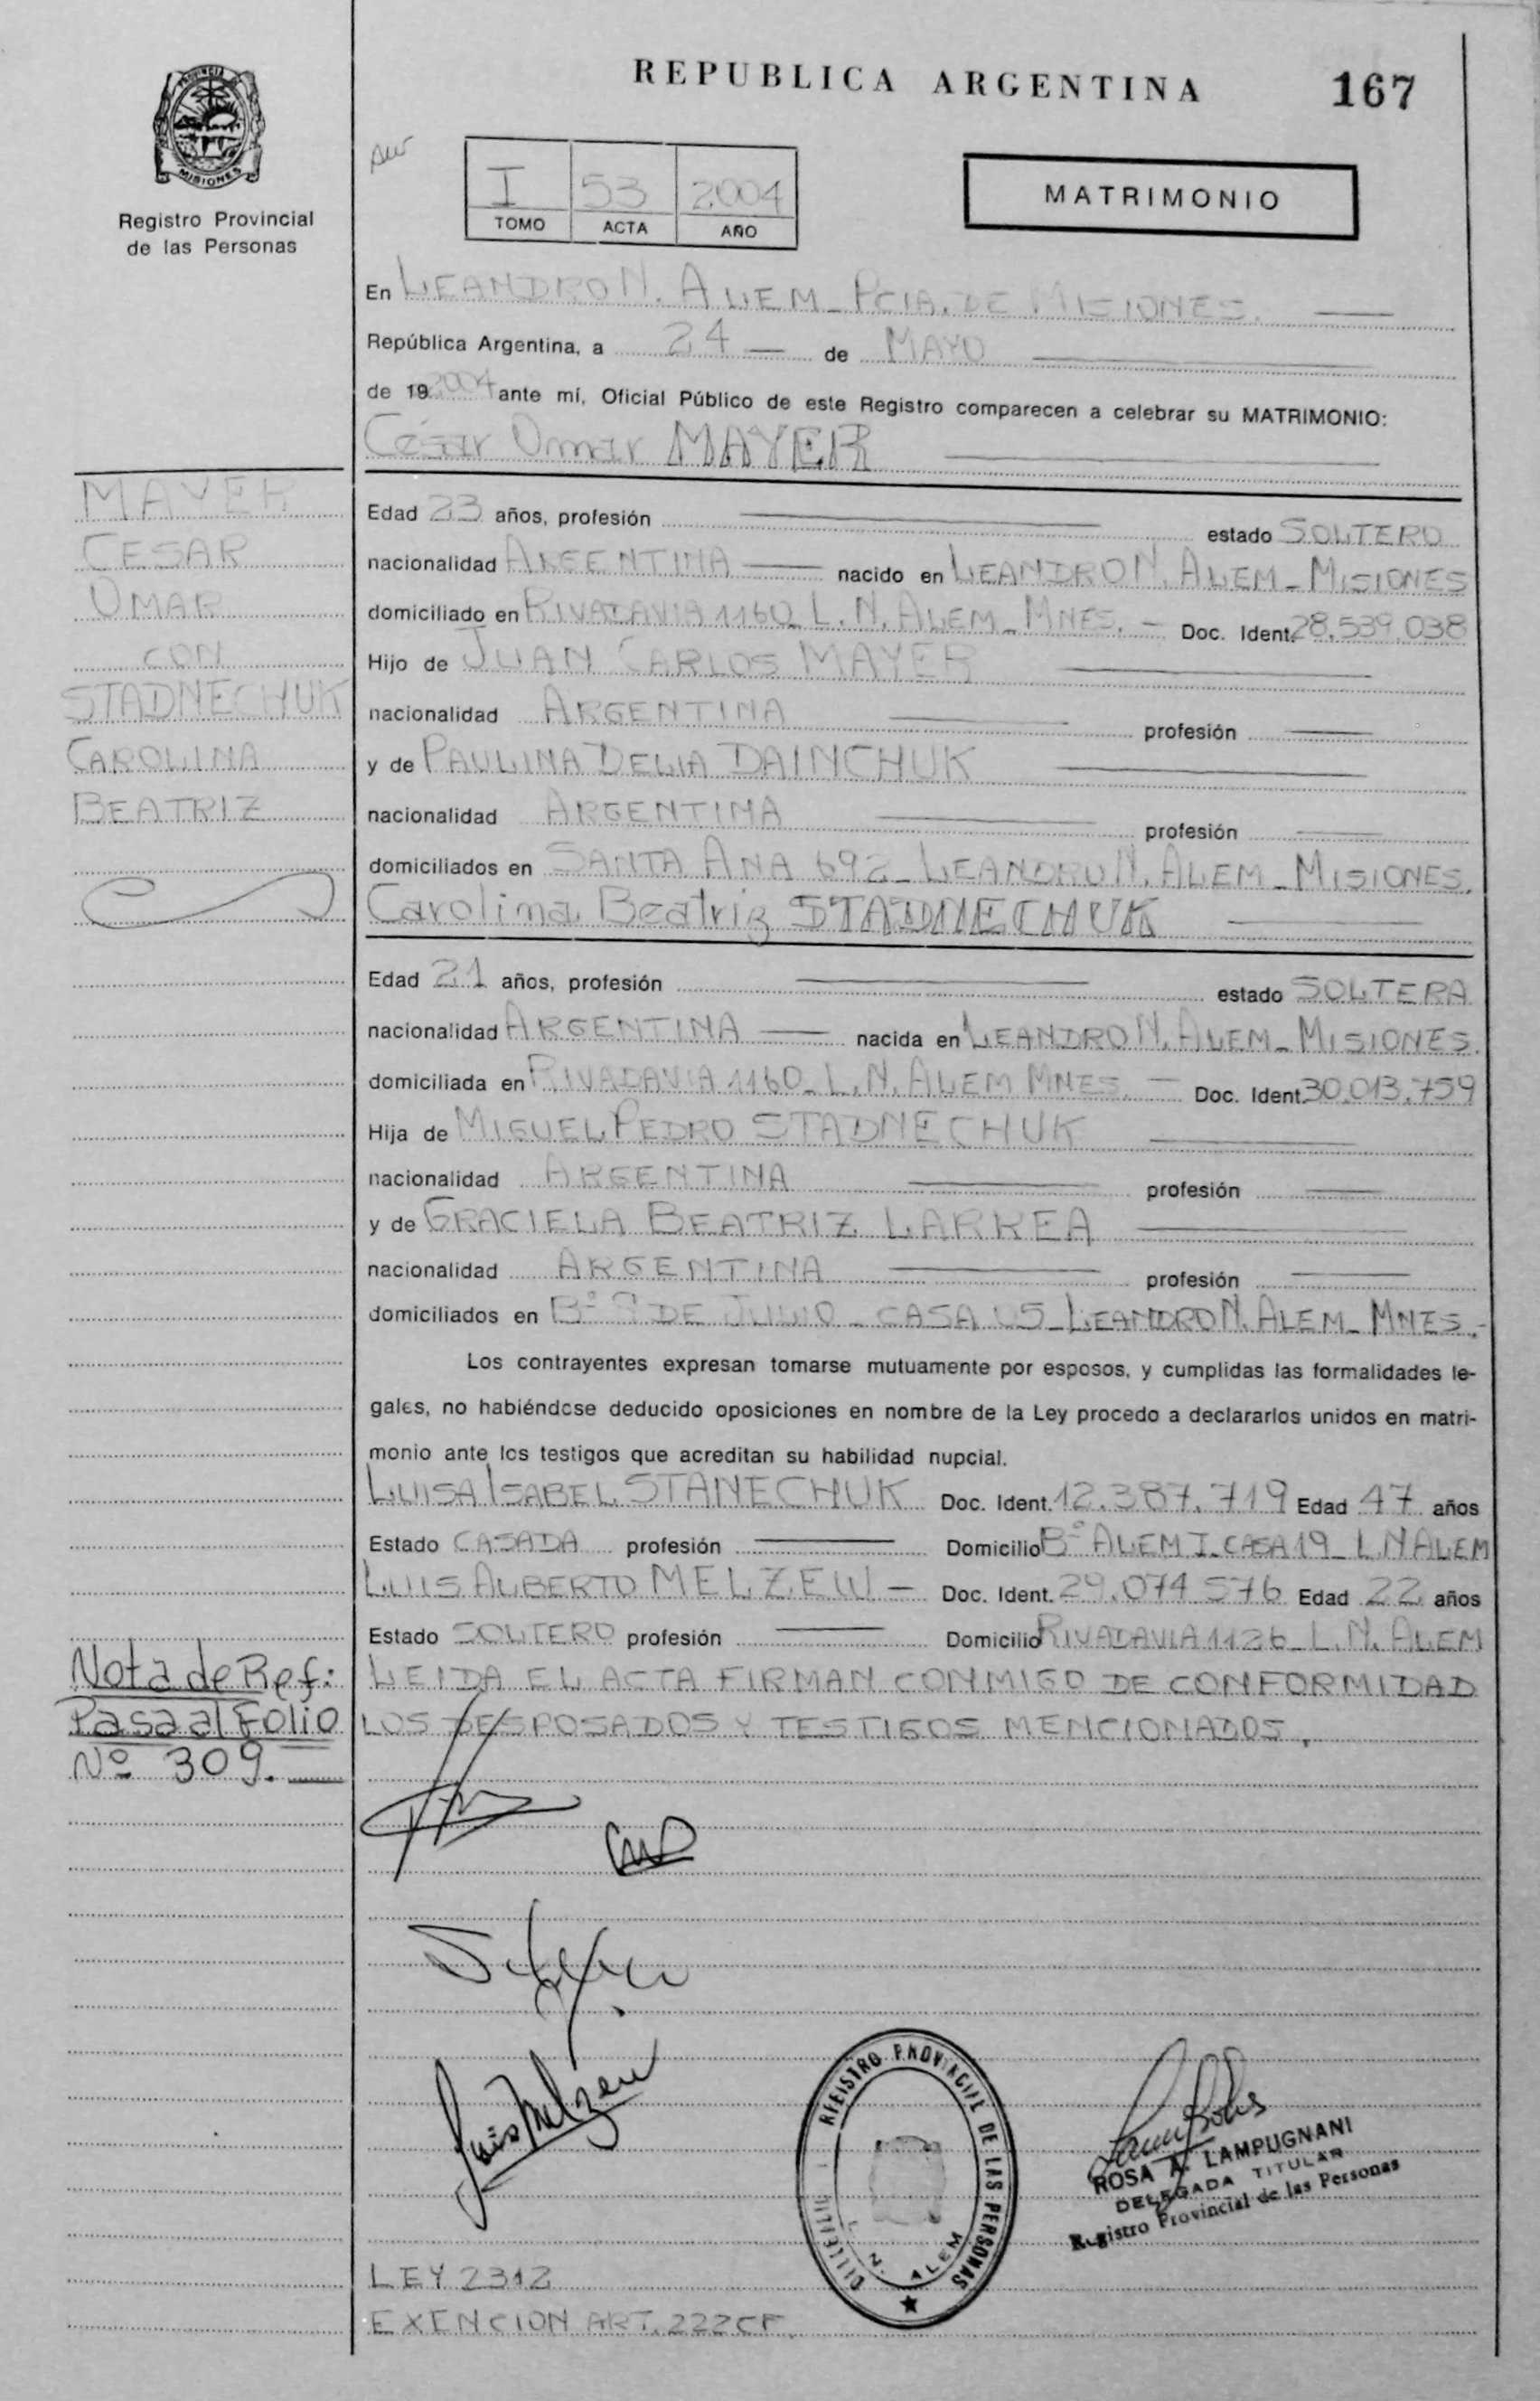 REPUBLICA ARGENTINA 167
PROVINCIA DE
MISIONES
Registro Provincial
de las Personas
I 53 2004
TOMO ACTA AÑO
MATRIMONIO
En LEANDRO N. ALEM_ PCIA. DE MISIONES.
República Argentina, a 24 de MAYO
de 19 2004 ante mí, Oficial Público de este Registro comparecen a celebrar su MATRIMONIO:
César Omar MAYER
MAYER
CESAR
OMAR
CON
STADNECHUK
CAROLINA
BEATRIZ
Edad 23 años, profesión estado SOLTERO
nacionalidad ARGENTINA nacido en LEANDRO N. ALEM_ MISIONES
domiciliado en RIVADAVIA 1160_ L. N. ALEM_ MNES. Doc. Ident. 28.539.038
Hijo de JUAN CARLOS MAYER
nacionalidad ARGENTINA profesión
y de PAULINA DELIA DAINCHUK
nacionalidad ARGENTINA profesión
domiciliados en SANTA ANA 692_ LEANDRO N. ALEM_ MISIONES.
Carolina Beatriz STADNECHUK
Edad 21 años, profesión estado SOLTERA
nacionalidad ARGENTINA nacida en LEANDRO N. ALEM_ MISIONES.
domiciliada en RIVADAVIA 1160_ L. N. ALEM MNES. Doc. Ident. 30.013.759
Hija de MIGUEL PEDRO STADNECHUK
nacionalidad ARGENTINA profesión
y de GRACIELA BEATRIZ LARREA
nacionalidad ARGENTINA profesión
domiciliados en Bº 9 DE JULIO_ CASA 05_ LEANDRO N. ALEM_ MNES.-
Los contrayentes expresan tomarse mutuamente por esposos, y cumplidas las formalidades le-
gales, no habiéndose deducido oposiciones en nombre de la Ley procedo a declararlos unidos en matri-
monio ante los testigos que acreditan su habilidad nupcial.
LUISA ISABEL STANECHUK Doc. Ident. 12.387.719 Edad 47 años
Estado CASADA profesión Domicilio Bº ALEM I_ CASA 19_ L N ALEM
LUIS ALBERTO MELZEW Doc. Ident. 29.074 576 Edad 22 años
Estado SOLTERO profesión Domicilio RIVADAVIA 1126_ L. N. ALEM
LEIDA EL ACTA FIRMAN CONMIGO DE CONFORMIDAD
LOS DESPOSADOS Y TESTIGOS MENCIONADOS.
Nota de Ref:
Pasa al Folio
Nº 309.
Luis Melzew
REGISTRO PROVINCIAL DE LAS PERSONAS
N. ALEM
ROSA A. LAMPUGNANI
DELEGADA TITULAR
Registro Provincial de las Personas
LEY 2312
EXENCION ART. 222 CF.